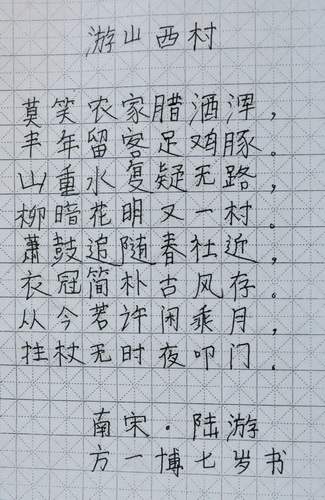 游山西村
莫笑农家腊酒浑，
丰年留客足鸡豚。
山重水复疑无路，
柳暗花明又一村。
萧鼓追随春社近，
衣冠简朴古风存。
从今若许闲乘月，
拄杖无时夜叩门。
南宋·陆游
方一博七岁书